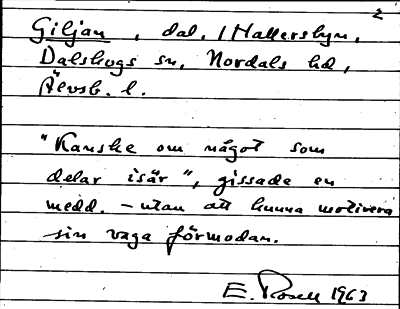 2
Giljan, dal. i Hallersbyn,
Dalskogs sn, Nordals hd,
Älvsb. l.
"Kanske om något som
delar isär", gissade en
medd. – utan att kunna motivera
sin vaga förmodan.
E. Rosell 1963